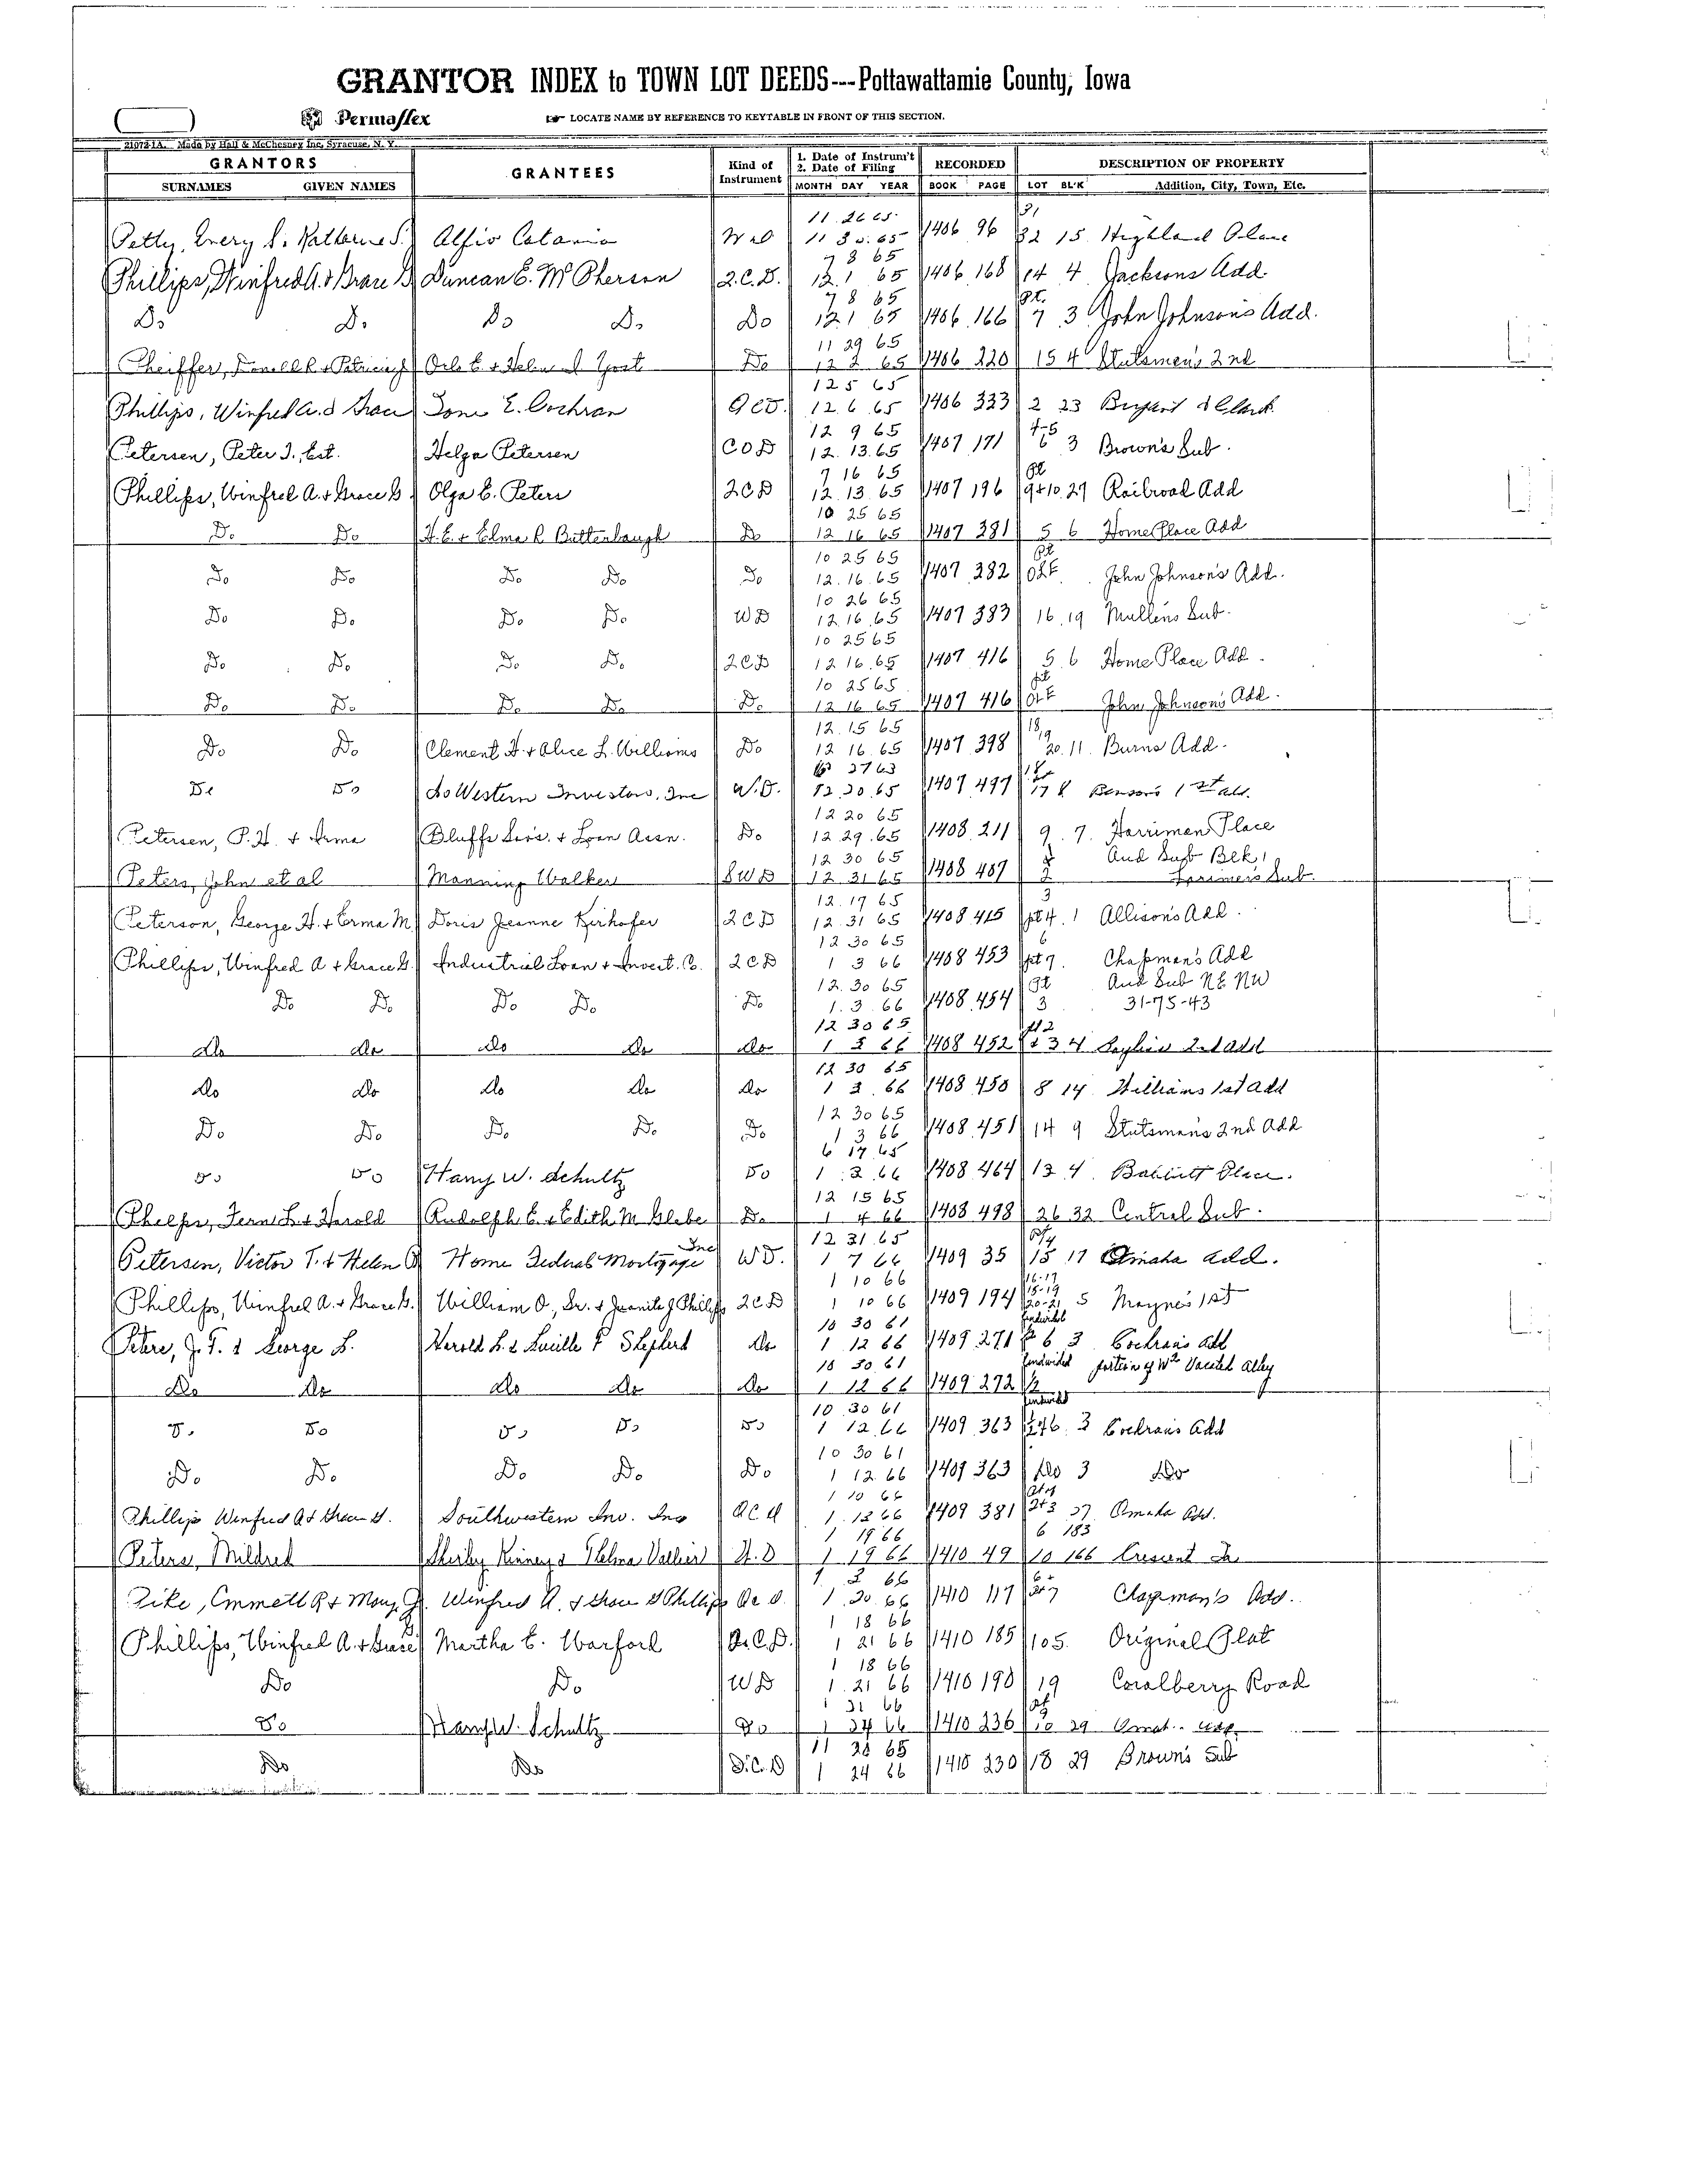 GRANTOR INDEX to TOWN LOT DEEDS---Pottawattamie County, Iowa
Permaflex LOCATE NAME BY REFERENCE TO KEYTABLE IN FRONT OF THIS SECTION.
21072-1A Made by Hall & McChesney Inc, Syracuse, N. Y.
GRANTORS GRANTEES Kind of Instrument 1. Date of Instrum't 2. Date of Filing RECORDED DESCRIPTION OF PROPERTY
SURNAMES GIVEN NAMES MONTH DAY YEAR BOOK PAGE LOT BL'K Addition, City, Town, Etc.
11 26 65 31
Petty, Avery S. Katherine S. Alfio Catania W D 11 30 65 1406 96 32 15 Highland Place
7 8 65
Phillips, Winfred A. & Grace G Duncan E. McPherson Q.C.D. 12 1 65 1406 168 14 4 Jacksons Add
7 8 65 Pt.
Do Do Do Do Do 12 1 65 1406 166 7 3 John Johnson's Add.
11 29 65
Pheiffer, Donald R & Patricia J Orlo E & Helen I Yost Do 12 2 65 1406 220 15 4 Stutsmen's 2nd
12 5 65
Phillips, Winfred A. & Grace Toni E. Cochran QCD. 12 6 65 1406 333 2 23 Bryant & Clark
12 9 65 4-5
Petersen, Peter J., Est. Helga Petersen COD 12 13 65 1407 171 6 3 Brown's Sub.
7 16 65 Pt
Phillips, Winfred A. & Grace G Olga E. Peters QCD 12 13 65 1407 196 9+10 27 Railroad Add
10 25 65
Do Do H. E. & Elma R Buttenbaugh Do 12 16 65 1407 381 5 6 Home Place Add
10 25 65 Pt
Do Do Do Do Do 12 16 65 1407 382 Of E John Johnson's Add.
10 26 65
Do Do Do Do WD 12 16 65 1407 383 16 19 Mullens Sub.
10 25 65
Do Do Do Do QCD 12 16 65 1407 416 5 6 Home Place Add.
10 25 65 pt
Do Do Do Do Do 12 16 65 1407 416 Of E John Johnson's Add.
12 15 65 18 19
Do Do Clement H. & Alice L. Williams Do 12 16 65 1407 398 20 11 Burns Add.
27 63
Do Do So Western Investors, Inc W.D. 12 20 65 1407 497 17 8 Benson's 1st add.
12 20 65
Petersen, P. H. & Irma Bluffs Sav's. & Loan Assn. Do 12 29 65 1408 211 9 7 Harriman Place
12 30 65 Aud Sub Blk 1
Peters, John et al Manning Walker SWD 12 31 65 1408 407 2 Lorimer's Sub.
12 17 65 3
Peterson, George H. & Erma M Doris Jeanne Kirhofer QCD 12 31 65 1408 415 pt 4 1 Allison's Add.
12 30 65 6
Phillips, Winfred A & Grace G. Industrial Loan & Invest. Co. QCD 1 3 66 1408 453 pt 7 Chapman's Add
12 30 65 Pt Aud Sub NE NW
Do Do Do Do Do 1 3 66 1408 454 3 31-75-43
12 30 65 pt 2
Do Do Do Do Do 1 3 66 1408 452 & 3 4 2nd Add
12 30 65
Do Do Do Do Do 1 3 66 1408 450 8 14 Williams 1st Add
12 30 65
Do Do Do Do Do 1 3 66 1408 451 14 9 Stutsman's 2nd Add
6 17 65
Do Do Harry W. Schultz Do 1 3 66 1408 464 13 4 Babbitt Place.
12 15 65
Phelps, Fern L. & Harold Rudolph E. & Edith M Glebe Do 1 4 66 1408 498 26 32 Central Sub.
12 31 65 Pt
Petersen, Victor T. & Helen Home Federal Mortgage Inc WD. 1 7 66 1409 35 15 17 Omaha Add.
1 10 66 16-17
Phillips, Winfred A. & Grace G. William O., Sr. & Juanita J Phillips QCD 1 10 66 1409 194 18-19 20-21 5 Mayne's 1st
10 30 61 Undivided
Peters, J. T. & George L. Harold L. & Lucille F Shepherd Do 1 12 66 1409 271 6 3 Cochran's Add
10 30 61 Undivided portion of Wly Vacated Alley
Do Do Do Do Do 1 12 66 1409 272 1/2
10 30 61 Undivided
Do Do Do Do Do 1 12 66 1409 363 6 3 Cochran's Add
10 30 61
Do Do Do Do Do 1 12 66 1409 363 Do 3 Do
1 10 66
Phillips Winfred A & Grace G. Southwestern Inv. Inc QCD 1 12 66 1409 381 2+3 27 Omaha Add.
1 19 66 6 183
Peters, Mildred Shirley Kinney & Thelma Vallier W.D 1 19 66 1410 49 10 166 Crescent
1 3 66 6 +
Pike, Emmett R & Mary J. Winfred A. & Grace G Phillips QCD. 1 20 66 1410 117 7 Chapman's Add.
1 18 66
Phillips, Winfred A. & Grace G Martha E. Warford Q.C.D. 1 21 66 1410 185 105 Original Plat
1 18 66
Do Do WD 1 21 66 1410 190 19 Coralberry Road
1 21 66 pt
Do Harry W. Schultz Do 1 24 66 1410 236 10 29 Omah. Add.
11 20 65
Do Do Q.C.D 1 24 66 1410 230 18 29 Brown's Sub